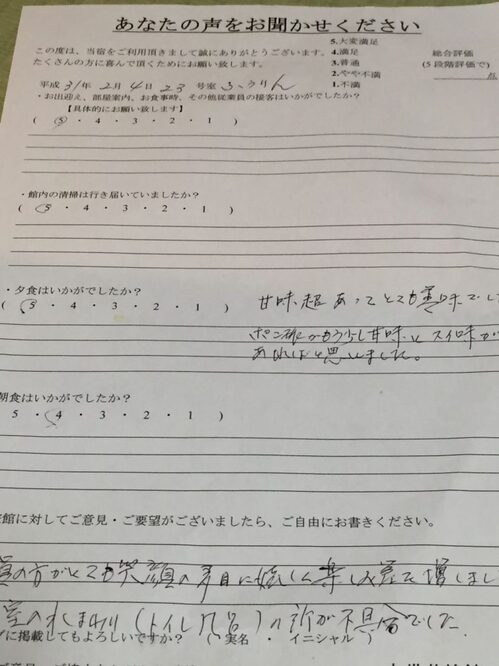 あなたの声をお聞かせください
この度は、当宿をご利用頂きまして誠にありがとうございます。
たくさんの方に喜んで頂くためにお願い致します。
5.大変満足
4.満足
3.普通
2.やや不満
1.不満
総合評価
(5段階評価で)
点
平成 31年 2月 4日 23 号室
・お出迎え、部屋案内、お食事時、その他従業員の接客はいかがでしたか?
【具体的にお願い致します】
( 5 ・ 4 ・ 3 ・ 2 ・ 1 )
・館内の清掃は行き届いていましたか?
( 5 ・ 4 ・ 3 ・ 2 ・ 1 )
・夕食はいかがでしたか?
( 5 ・ 4 ・ 3 ・ 2 ・ 1 )
甘味 あってとても美味でし
ポン酢がもう少し甘味と スイ味が
あればと思いました。
朝食はいかがでしたか?
5 ・ 4 ・ 3 ・ 2 ・ 1 )
館に対してご意見・ご要望がございましたら、ご自由にお書きください。
の方がとても笑顔 増しまし
室の水まわり(トイレ風呂)の所が不具合でした
に掲載してもよろしいですか? ( 実名 ・ イニシャル )